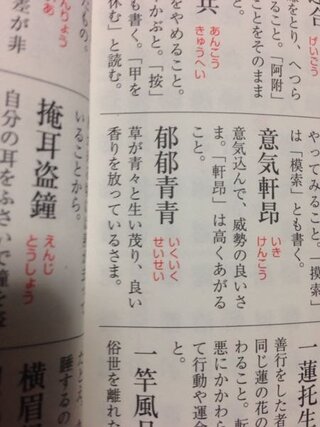 合
げいごう
をとり、へつら
こと。「阿附」
ことをそのまま
兵
あんこう
きゅうへい
をやめること。
かぶと。「按」
も書く。「甲を
休む」と読む。
やってみること。「摸索」
は「模索」とも書く。
意気軒昂
いき
けんこう
意気込んで、威勢の良いさ
ま。「軒昂」は高くあがる
こと。
郁郁青青
いくいく
せいせい
草が青々と生い茂り、良い
香りを放っているさま。
一蓮托生
善行をした者
同じ蓮の花の
わること。転
悪にかかわら
て行動や運命
と。
一竿風月
俗世を離れた
りょう
差が非
いることから。
掩耳盗鐘
えんじ
とうしょう
自分の耳をふさいで鐘を盗
睡するの
横眉